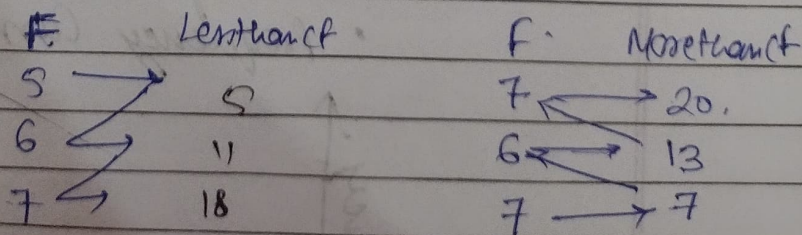 F Lessthancf F. Morethancf
5 5 7 20.
6 11 6 13
7 18 7 7